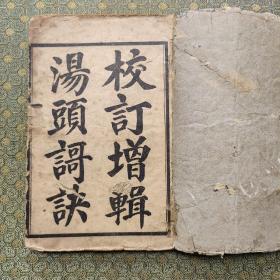 校訂增輯
湯頭謌訣